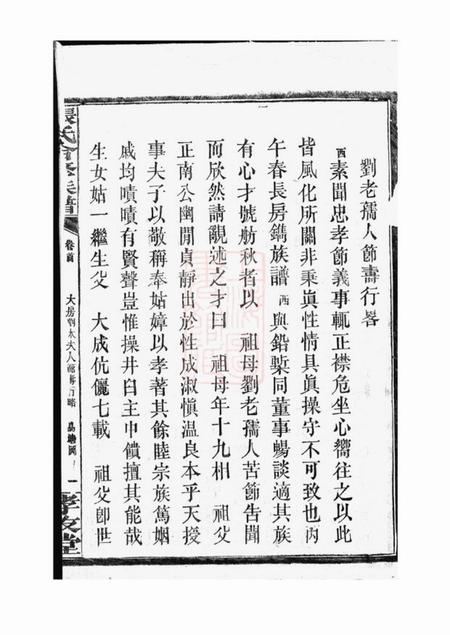 劉老孺人節壽行畧
酉素聞忠孝節義事輒正襟危坐心嚮往之以此
皆風化所關非秉眞性情具眞操守不可致也丙
午春長房鐫族譜酉與鉛槧同董事暢談適其族
有心才號舫秋者以 祖母劉老孺人苦節告聞
而欣然請覶述之才曰 祖母年十九相 祖父
正南公幽閒貞靜出於性成淑愼温良本乎天授
事夫子以敬稱奉姑嫜以孝著其餘睦宗族篤姻
戚均嘖嘖有賢聲豈惟操井臼主中饋擅其能哉
生女姑一繼生父 大成伉儷七載 祖父卽世
張氏 修族譜
卷首
大房劉太夫人節壽行略
一
孝友堂